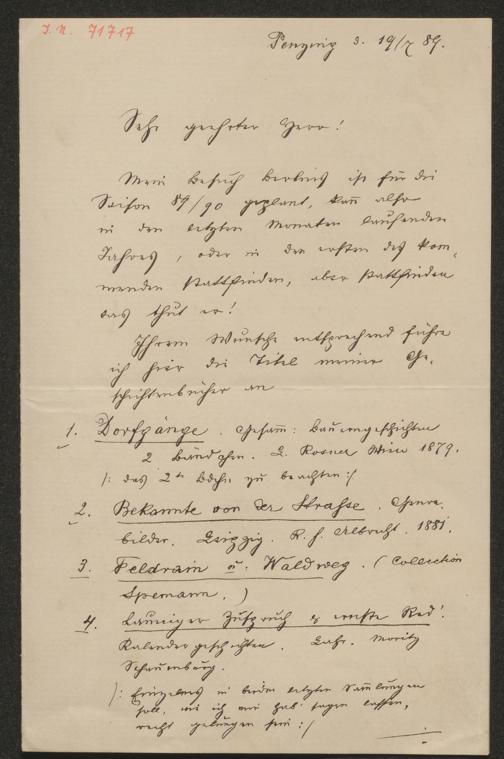 J. N. 71717
Penzing d. 19/7 89.
Sehr geehrter Herr!
Mein Besuch Berlins ist für die
Saison 89/90 geplant, kan̄ also
in den letzten Monaten laufenden
Jahres, oder in den ersten des kom-
menden stattfinden, aber stattfinden
das thut er!
Ihrem Wunsche entsprechend führe
ich hier die Titel meiner Ge-
schichtenbücher an
1. Dorfgänge. Gesam̄: Bauerngeschichten
2 Bändchen. L. Rosner Wien 1879.
/: das 2te Bdch. zu beachten :/
2. Bekannte von der Strasse. Genre-
bilder. Leipzig. R. f. Albrecht. 1881.
3. Feldrain u. Waldweg. (Collection
Spemann.)
4. Launiger Zuspruch & ernste Red'.
Kalendergeschichten. Lahr. Moritz
Schauenburg.
/: Einzelnes in beiden letzten Sam̄lungen
soll, wie ich mir hab' sagen lassen,
recht gelungen sein :/